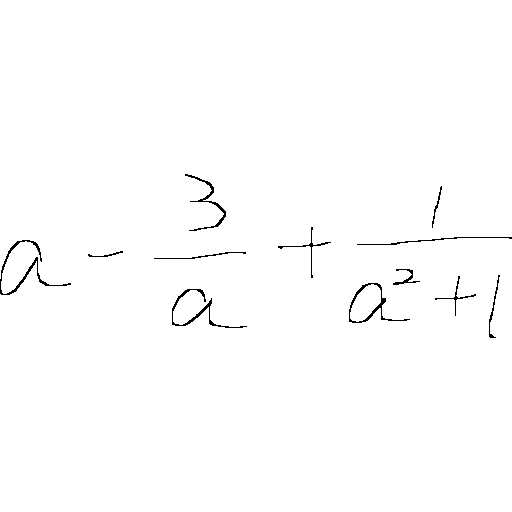 a - \frac{3}{a} + \frac{1}{a^2+1}